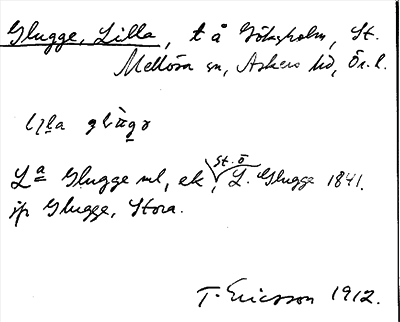 Glugge, Lilla, t å Göksholm, St.
Mellösa sn, Askers hd, Ör. l.
La Glugge ml, ek, St. o L. Glugge 1841.
jfr Glugge, Stora.
T. Ericsson 1912.